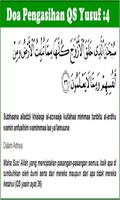 Doa Pengasihan QS Yusuf :4
سُبْحَٰنَ الَّذِي خَلَقَ الْأَزْوَاجَ كُلَّهَا مِمَّا تُنْبِتُ الْأَرْضُ وَمِنْ
أَنْفُسِهِمْ وَمِمَّا لَا يَعْلَمُونَ
Subhaana alladzii khalaqa al-azwaaja kullahaa mimmaa tunbitu al-ardhu
wamin anfusihim wamimmaa laa ya'lamuuna
Dalam Artinya
Maha Suci Allah yang menciptakan pasangan-pasangan semua, baik apa di
tumbuhkan oleh bumi serta dari mereka maupun dari apa tidak mereka
ketahui (QS yasin ayat 36)